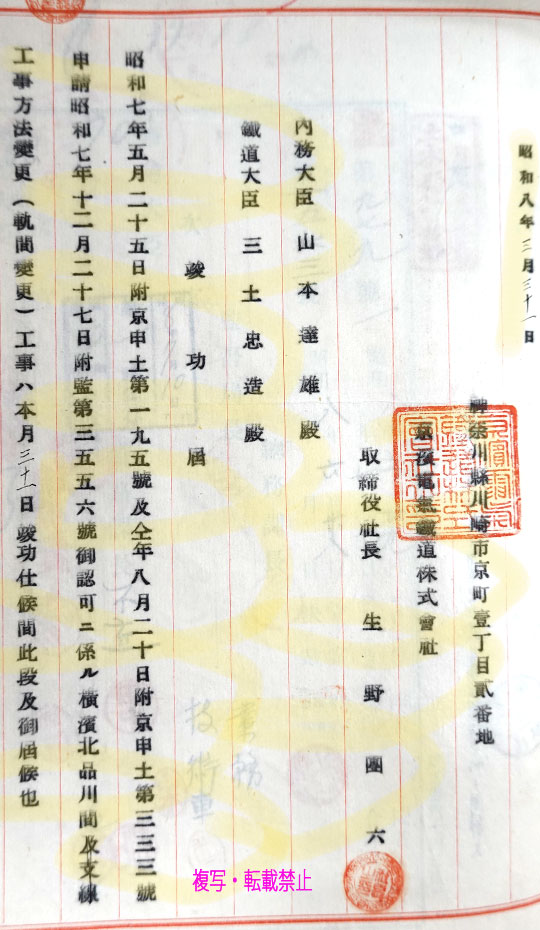 昭和八年三月三十一日
神奈川縣川崎市京町壹丁目貳番地
京濱電氣鐵道株式會社
取締役社長 生野團六
內務大臣 山本達雄殿
鐵道大臣 三土忠造殿
竣功屆
昭和七年五月二十五日附京申土第一九五號及仝年八月二十日附京申土第三三三號
申請昭和七年十二月二十七日附監第三五五六號御認可ニ係ル橫濱北品川間及支線
工事方法變更(軌間變更)工事ハ本月三十一日竣功仕候間此段及御屆候也
業務
技術車
複写・転載禁止